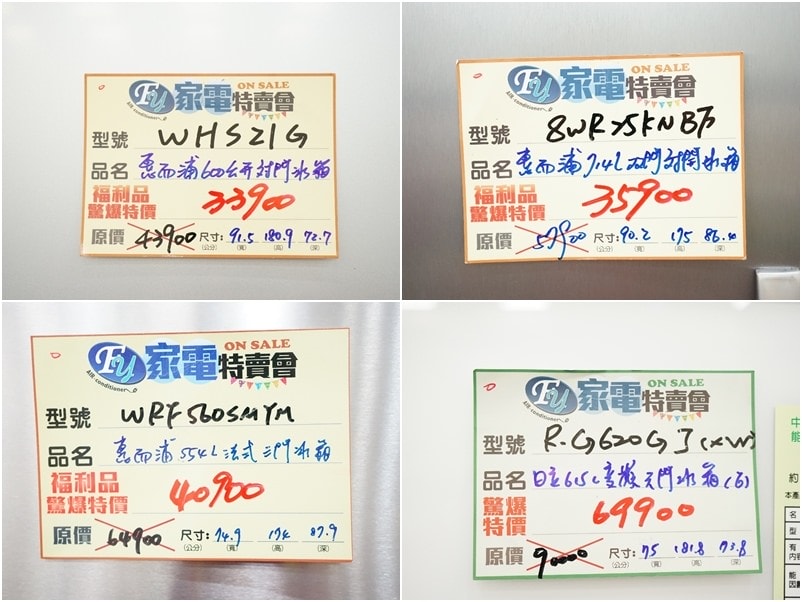 ON SALE
Fu 家電特賣會
air conditioner
型號 WHS21G
品名 惠而浦600公升對開冰箱
福利品
驚爆特價 33900
原價 43900 尺寸: 91.5 180.9 72.7
(公分) (寬) (高) (深)
ON SALE
Fu 家電特賣會
air conditioner
型號 8WRS25KNBF
品名 惠而浦 714L 双門對開冰箱
福利品
驚爆特價 35900
原價 57900 尺寸: 90.2 175 86.4
(公分) (寬) (高) (深)
ON SALE
Fu 家電特賣會
air conditioner
型號 WRF560SMYM
品名 惠而浦 554L法式三門冰箱
福利品
驚爆特價 40900
原價 64900 尺寸: 74.9 174 87.9
(公分) (寬) (高) (深)
ON SALE
Fu 家電特賣會
air conditioner
型號 R-G620GJ(XW)
品名 日立615L變頻六門冰箱(白)
驚爆
特價 69900
原價 90000 尺寸: 75 181.8 73.8
(公分) (寬) (高) (深)
中
能
約
本產
名
型
有
內容
能
因數